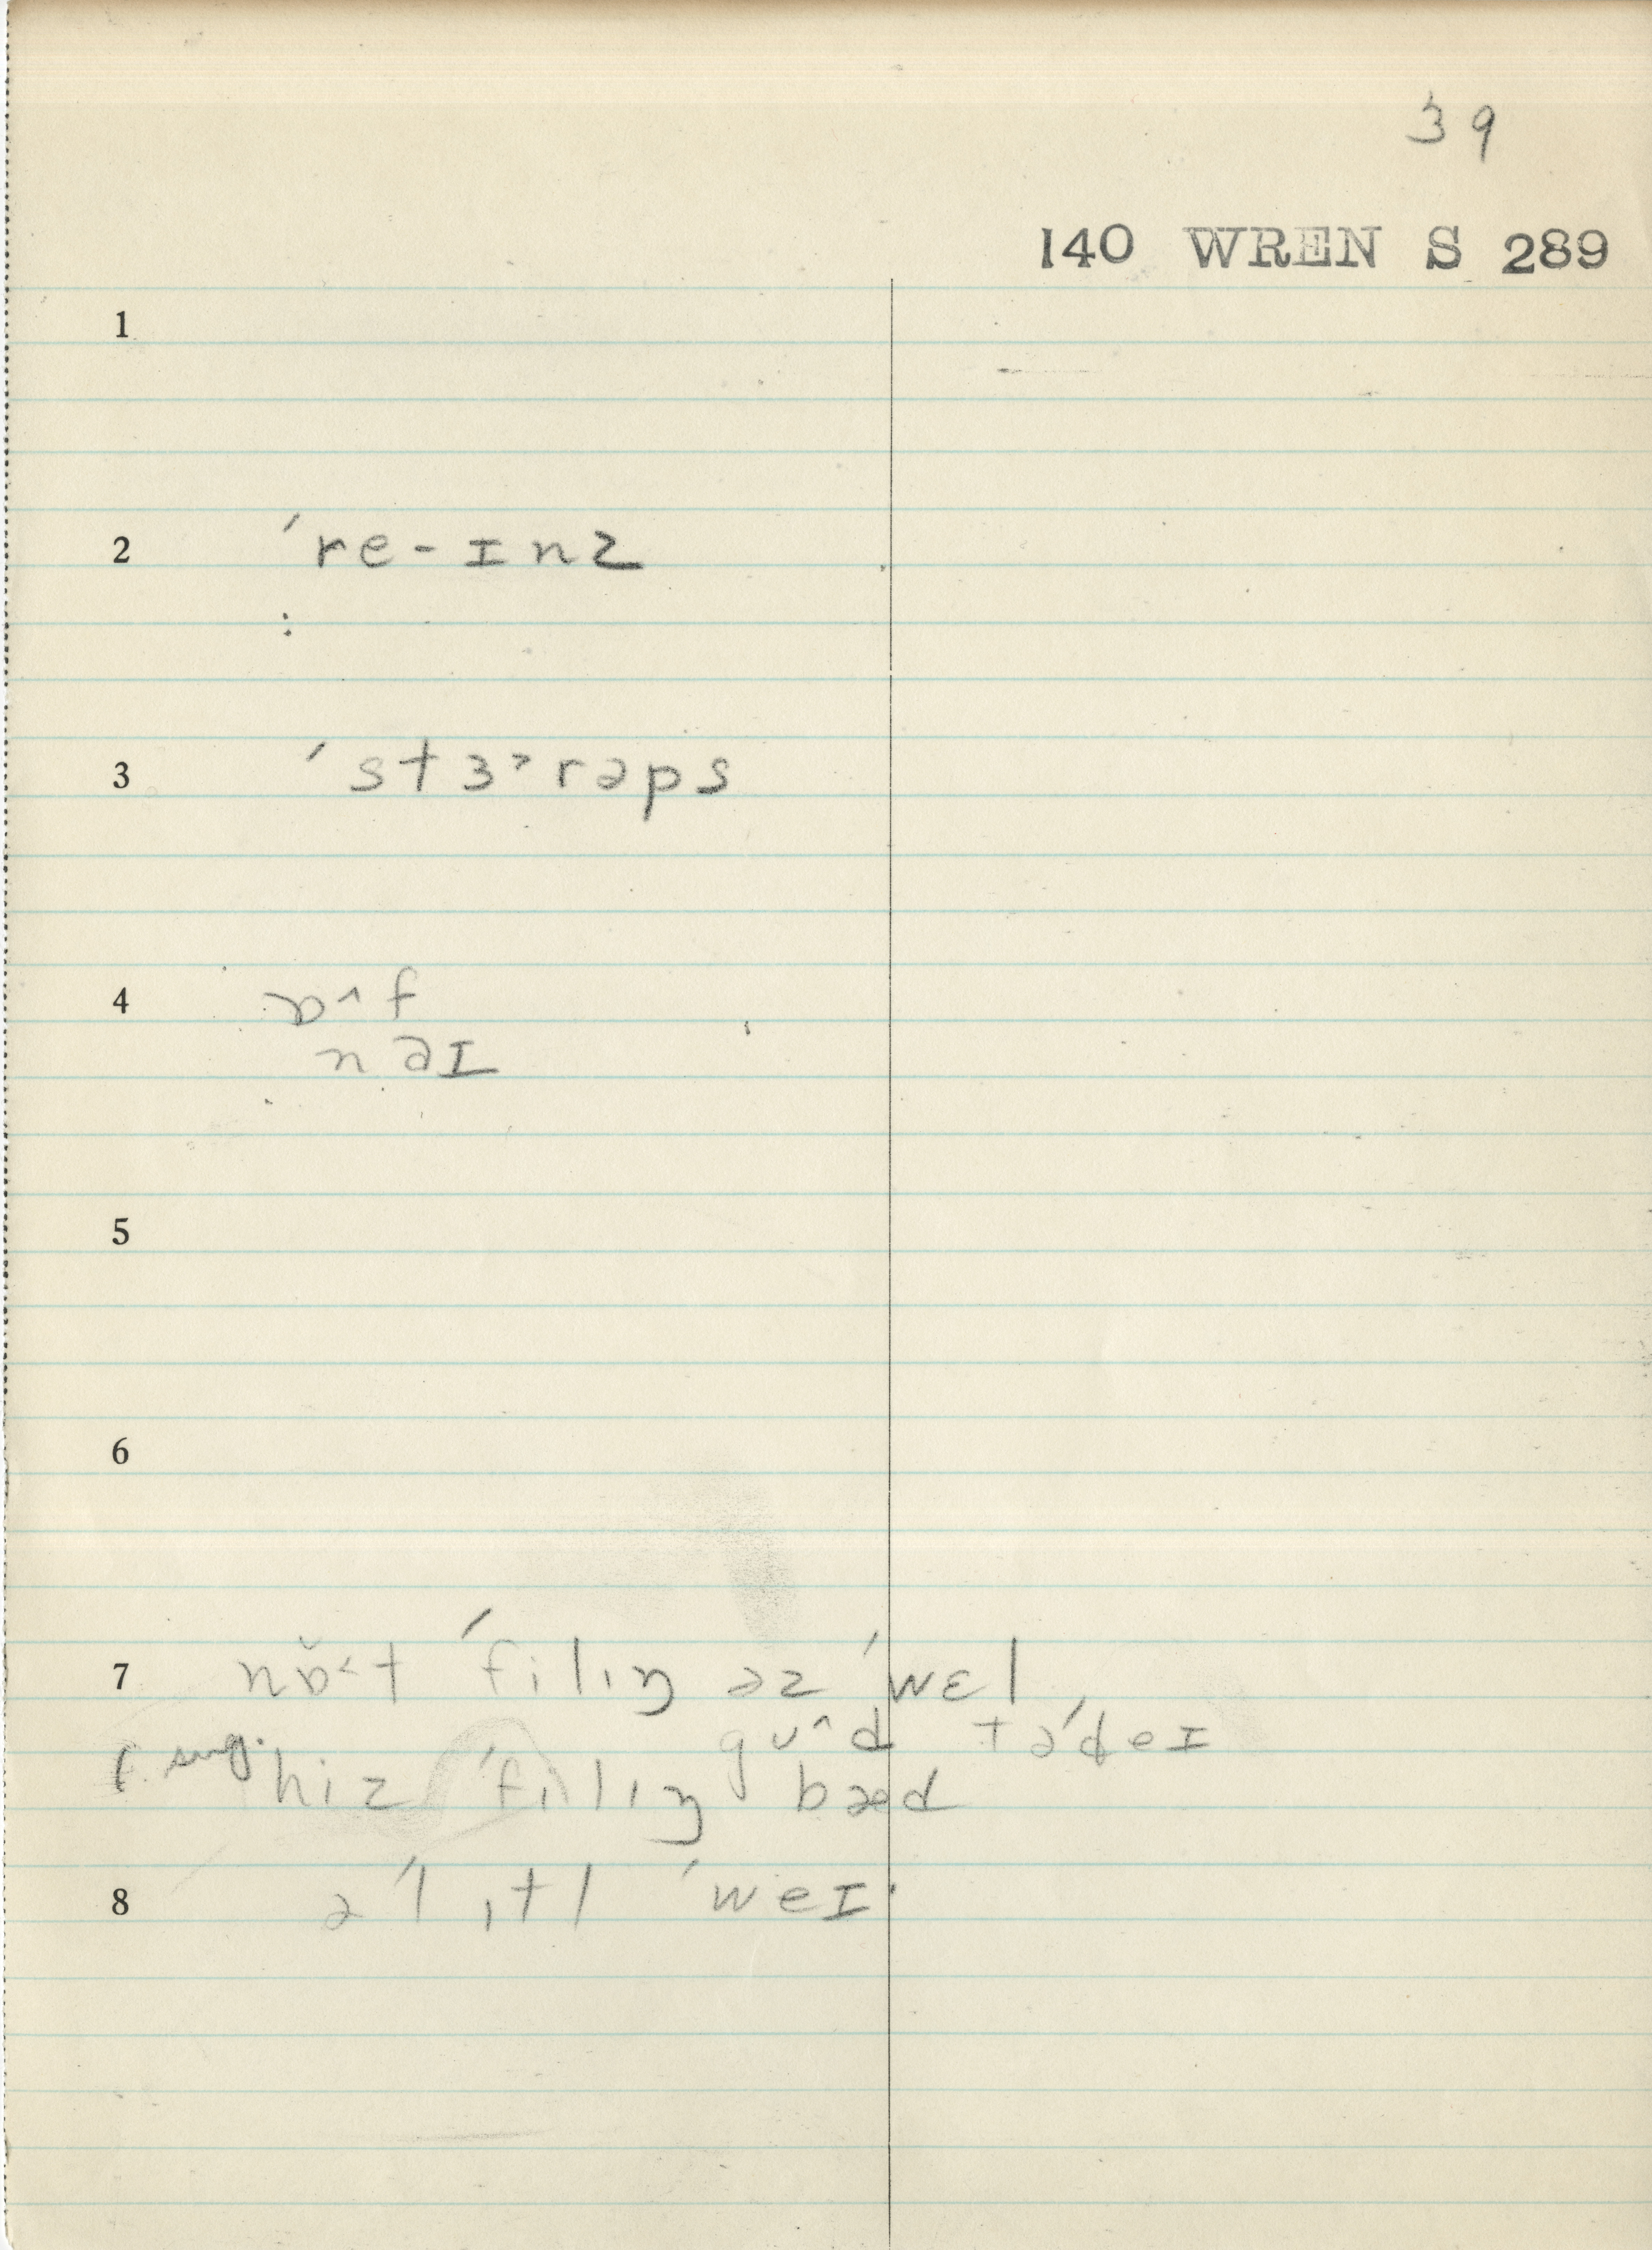 39
140 WREN S 289
1
2 ˈre-ɪnz
3 ˈstɜ˞rəps
4 ɒ^f
nəɪ
5
6
7 nɒ̆˂t ˈfilɪŋ əz ˈwɛl
gʊ^d təˈdeɪ
sug. hiz ˈfilɪŋ bæd
8 əˈlɪtl ˈweɪ